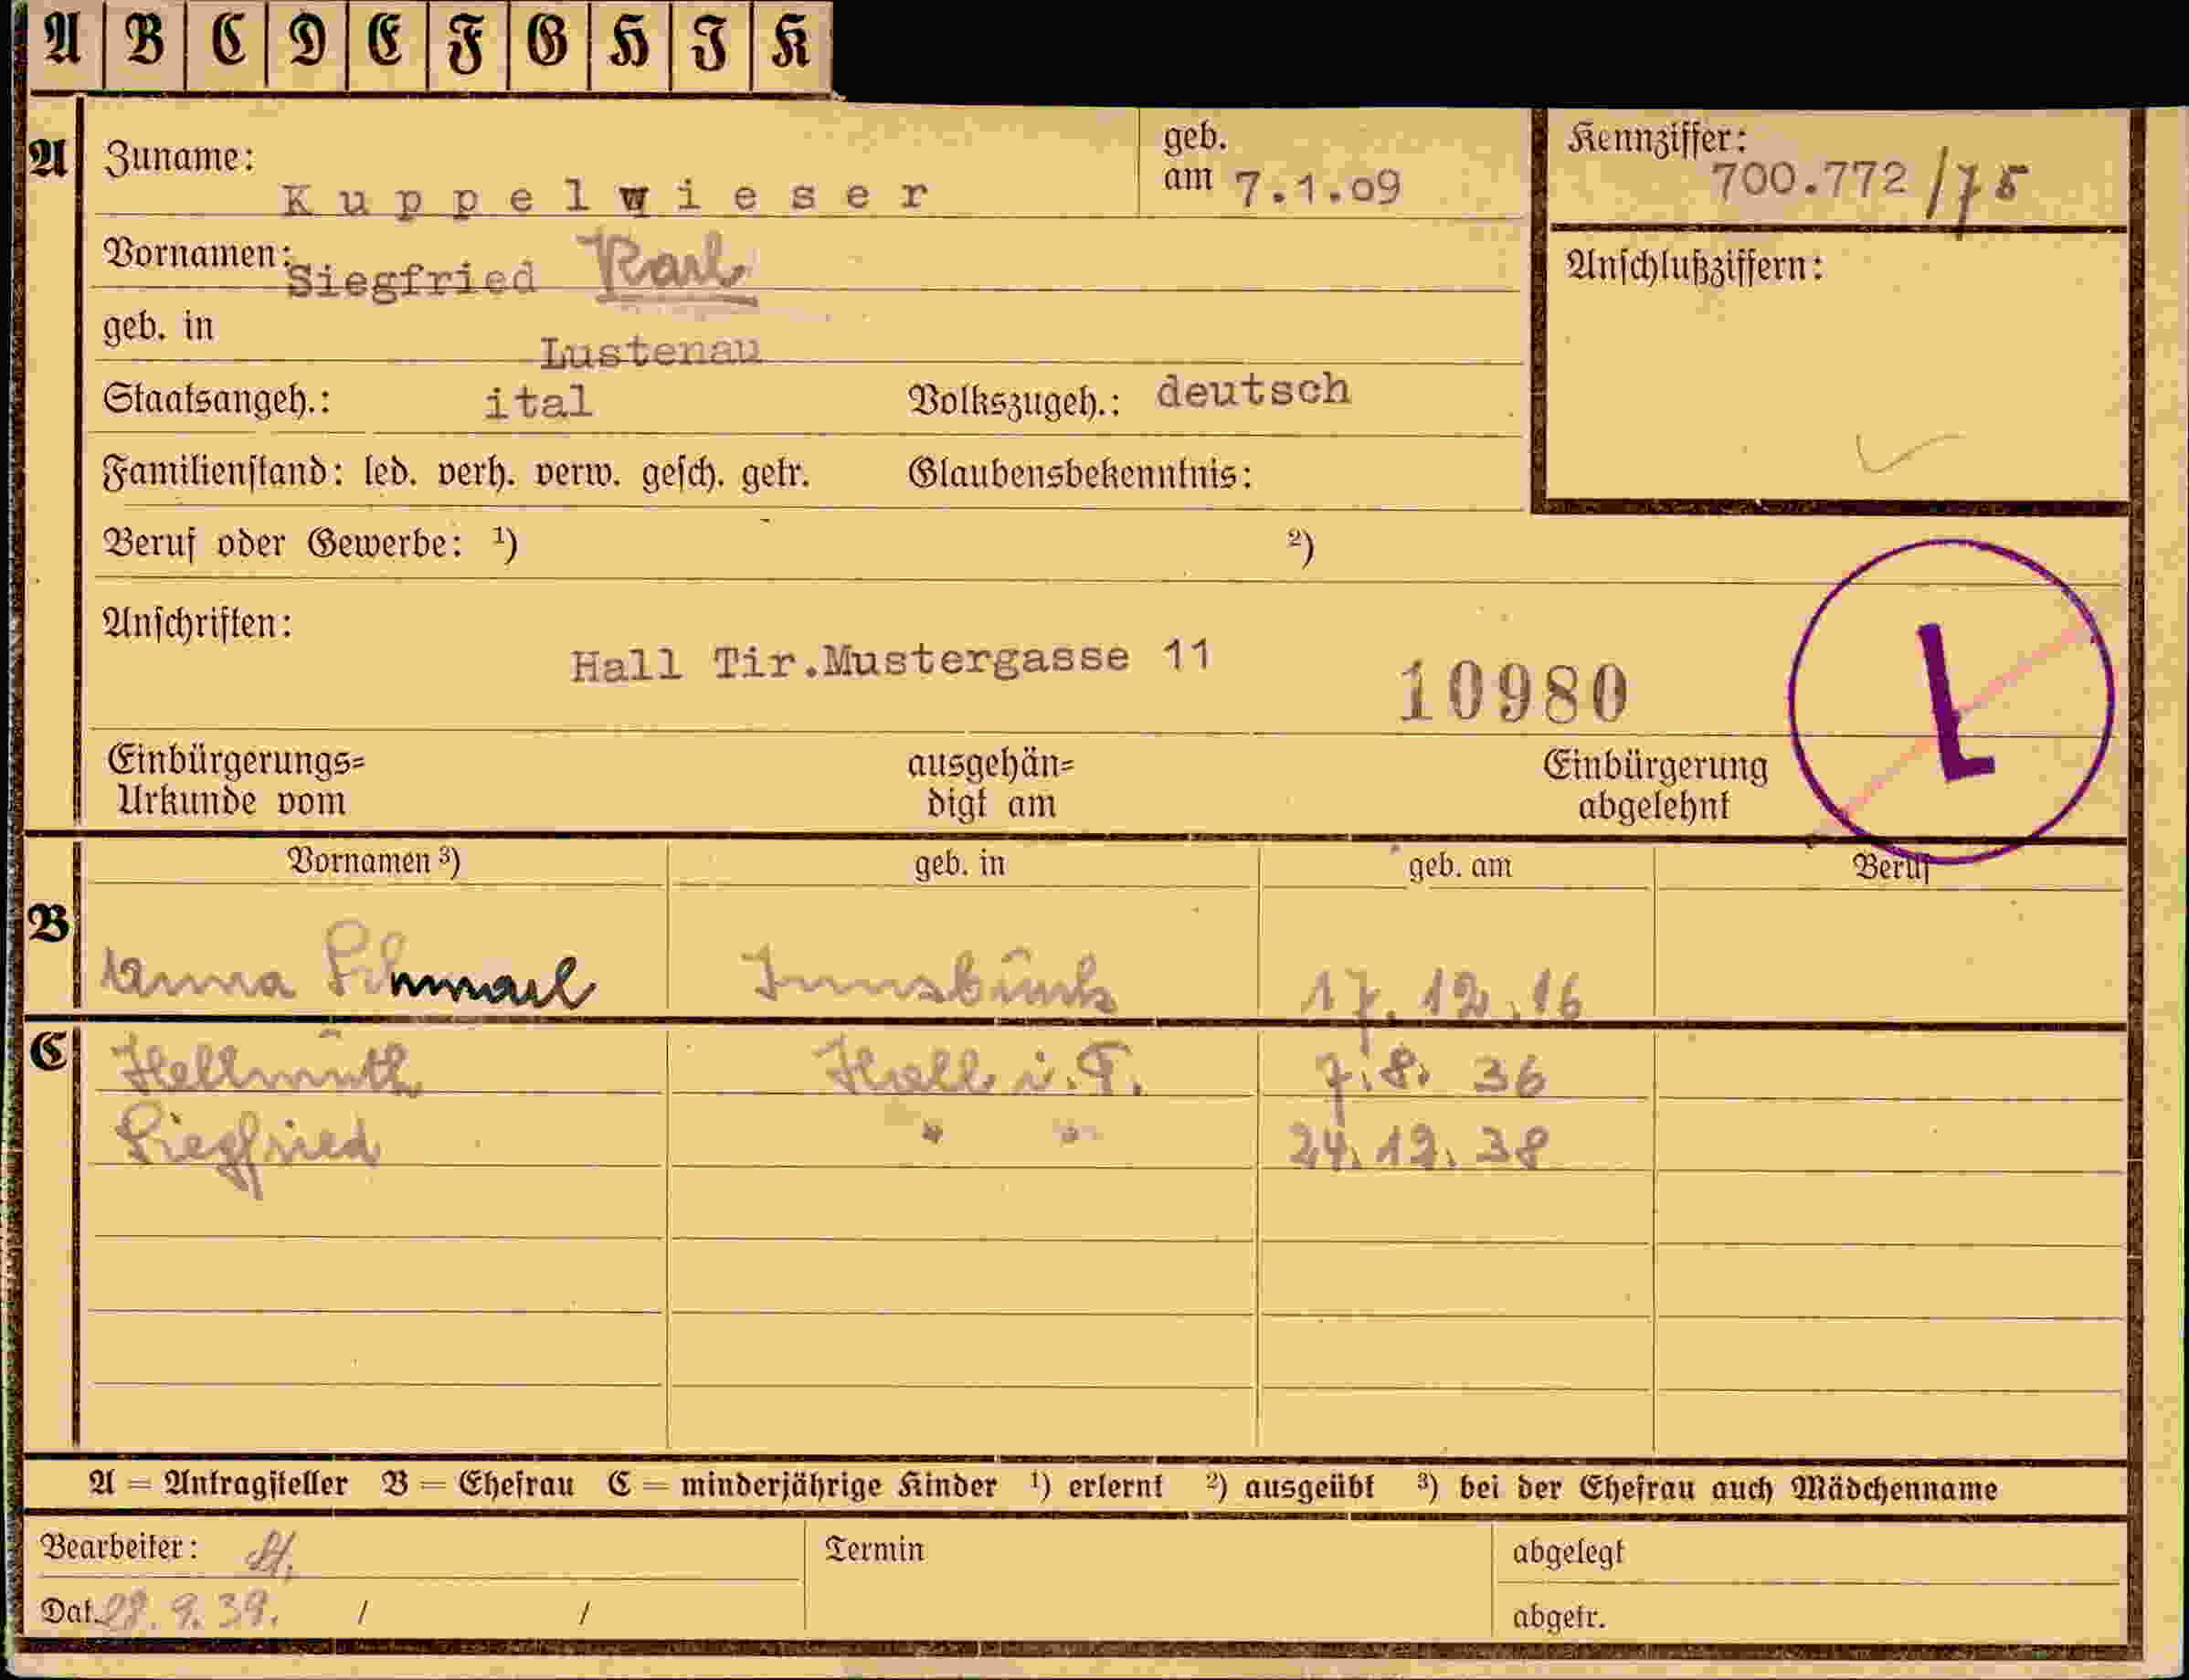 A B C D E F G H I K
A Zuname: Kuppelwieser geb. am 7.1.09 Kennziffer: 700.772/75
Vornamen: Siegfried Karl Anschlußziffern:
geb. in Lustenau
Staatsangeh.: ital Volkszugeh.: deutsch
Familienstand: led. verh. verw. gesch. getr. Glaubensbekenntnis:
Beruf oder Gewerbe: 1) 2)
Anschriften: Hall Tir.Mustergasse 11 10980 L
Einbürgerungs= ausgehän= Einbürgerung
Urkunde vom digt am abgelehnt
Vornamen 3) geb. in geb. am Beruf
B Anna Schmarl Innsbruck 17.12.16
C Hellmuth Hall i.T. 7.8. 36
Siegfried " " 24.12.38
A = Antragsteller B = Ehefrau C = minderjährige Kinder 1) erlernt 2) ausgeübt 3) bei der Ehefrau auch Mädchenname
Bearbeiter: Termin abgelegt
Dat. 28.9.39. / / abgetr.